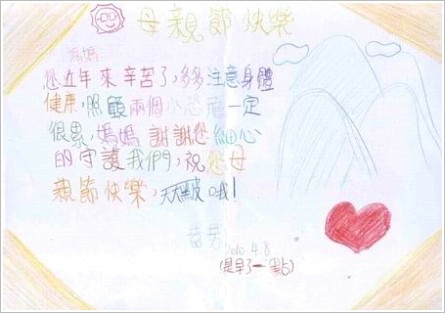 母親節快樂
媽媽:
您近年來辛苦了,多多注意身體
健康,照顧兩個小恐龍一定
很累,媽媽謝謝您細心
的守護我們,祝您母
親節快樂,天天 哦!
2010.4.8
(是早了一點)